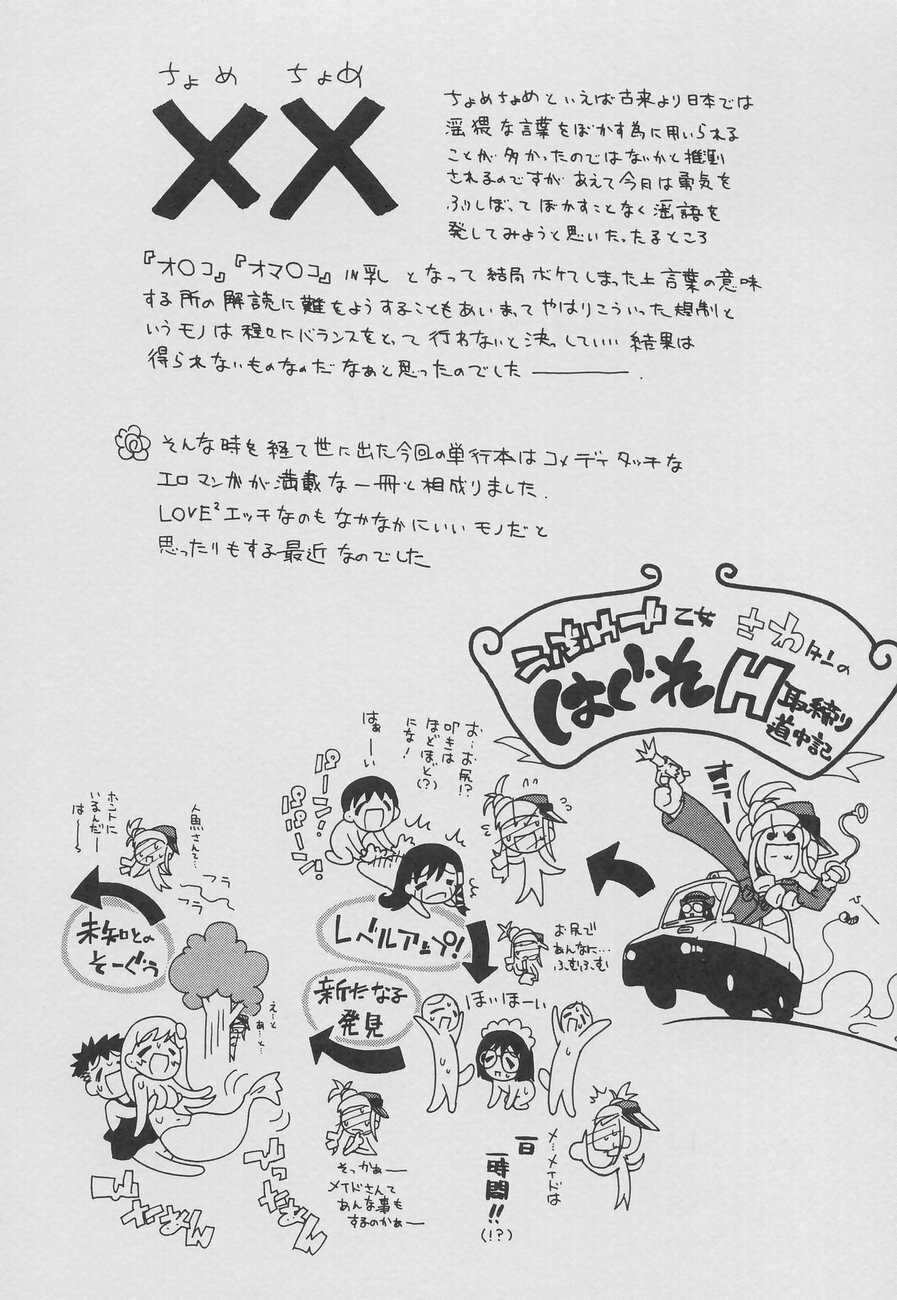 ちょめ ちょめ
××
ちょめちょめといえば古来より日本では
淫猥な言葉をぼかす為に用いられる
ことが多かったのではないかと推測
されるのですが あえて今日は勇気を
ふりしぼってぼかすことなく淫語を
発してみようと思いたったるところ
『オ〇コ』『オマ〇コ』IN乳 となって 結局ボケてしまった上 言葉の意味
する所の解読に難をようすることもあいまって やはりこういった規制と
いうモノは程々にバランスをとって 行わないと決っしていい 結果は
得られないものなのだなぁと思ったのでした ――――.
そんな時を経て世に出た今回の単行本は コメディタッチな
エロマンガが満載な一冊と相成りました.
LOVE²エッチなのもなかなかにいいモノだと
思ったりもする最近なのでした
乙女 さわタンの
はぐれH取締り
道中記
お…お尻!?
叩きは
ほどほど(?)
にな!
はぁーい
パーン!
パーン!
レベルアップ!
お尻で
あんなに…
ふむふむ
ほいほーい
メ…メイドは
一日
一時間!!
(!?)
新たなる
発見
そっかぁー
メイドさんて
あんな事も
するのかぁー
えーと
あ…と…
未知との
そーぐう
人魚さんて…
ホントに
いるんだー
はー
フラ
フラ